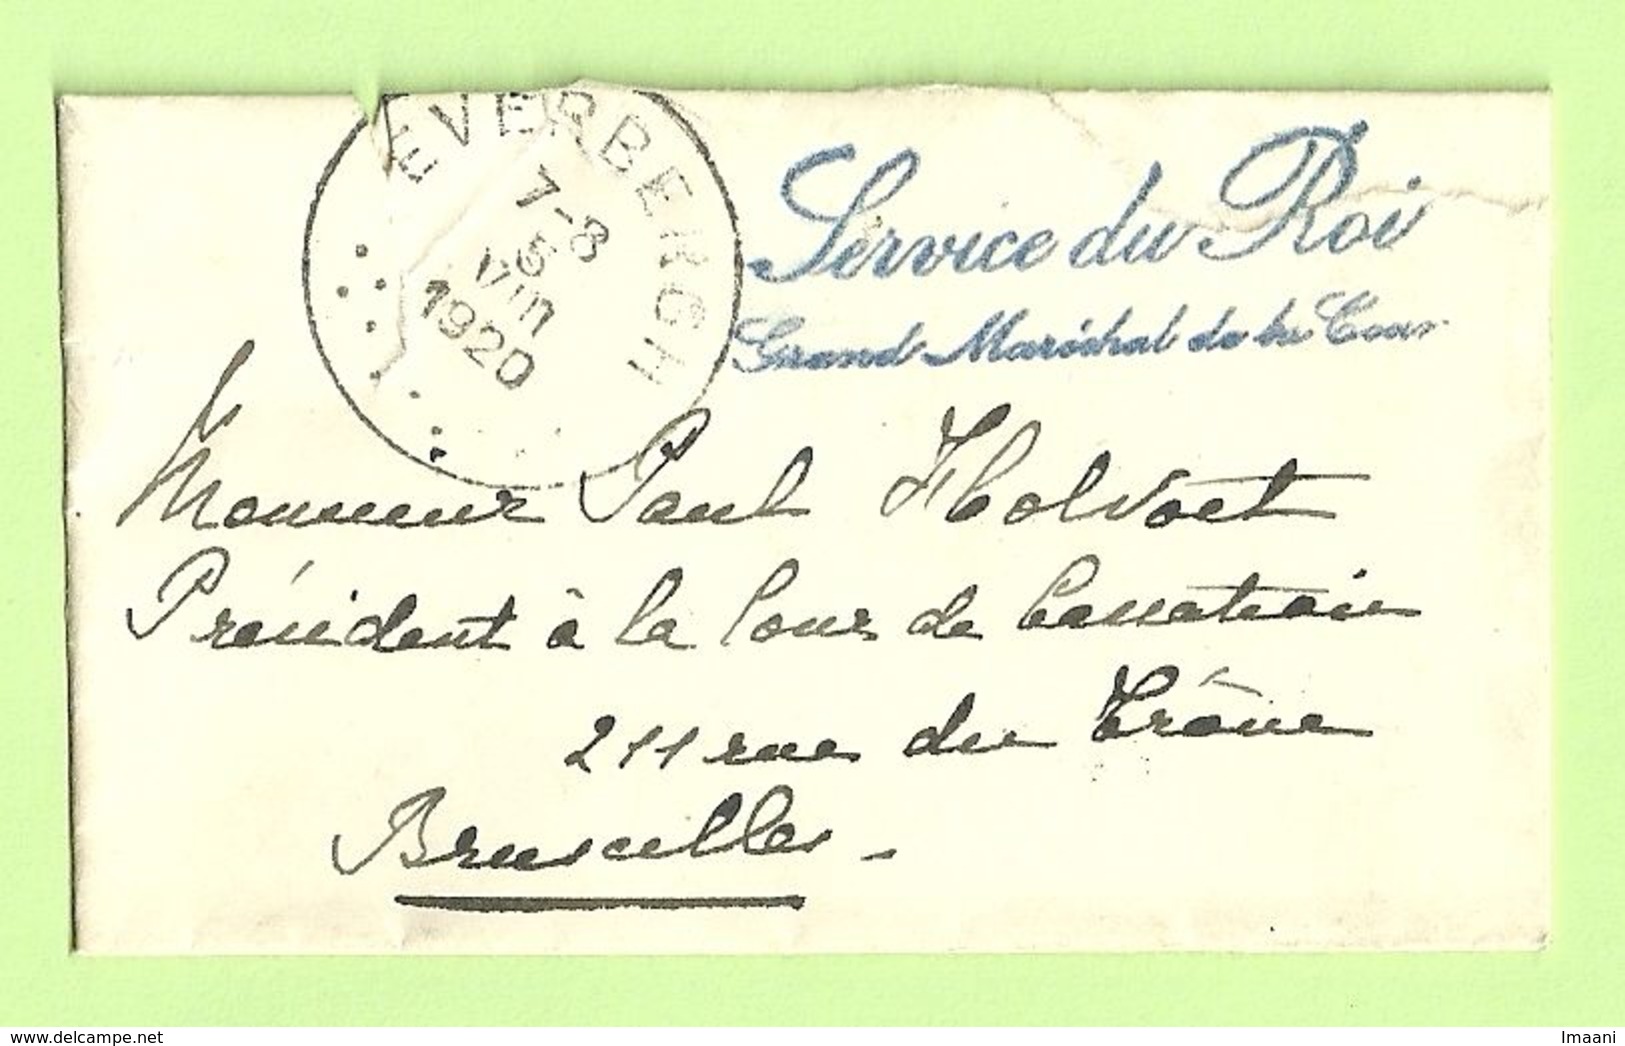 EVERBERGH
7-8
5
VIII
1920
Service du Roi
Grand Maréchal de la Cour
Monsieur Paul Holvoet
Président à la Cour de Cassation
211 rue du Trône
Bruxelles -
delcampe.net
Imaani